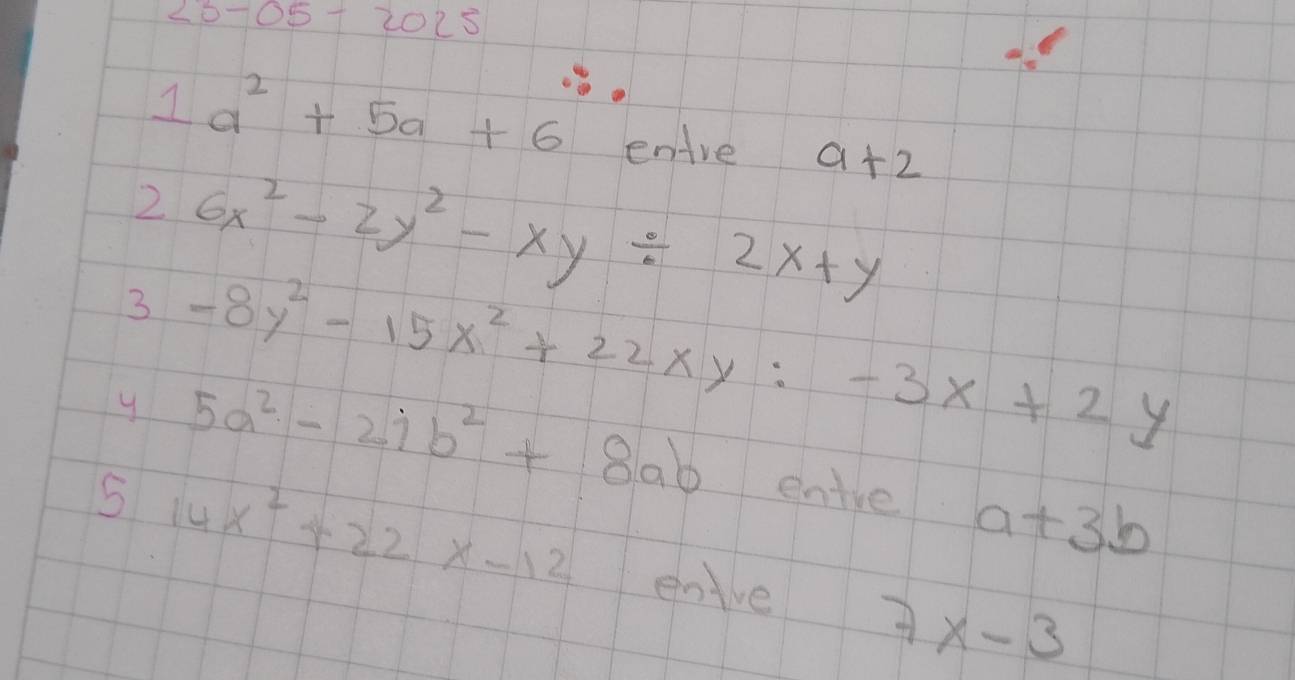 -05-2025
1 a² + 5a + 6 entre a+2
2 6x² - 2y² - xy ÷ 2x+y
3 -8y² - 15x² + 22xy : -3x + 2y
4 5a² - 21b² + 8ab entre a+3b
5 14x² + 22x-12 entre 7x-3